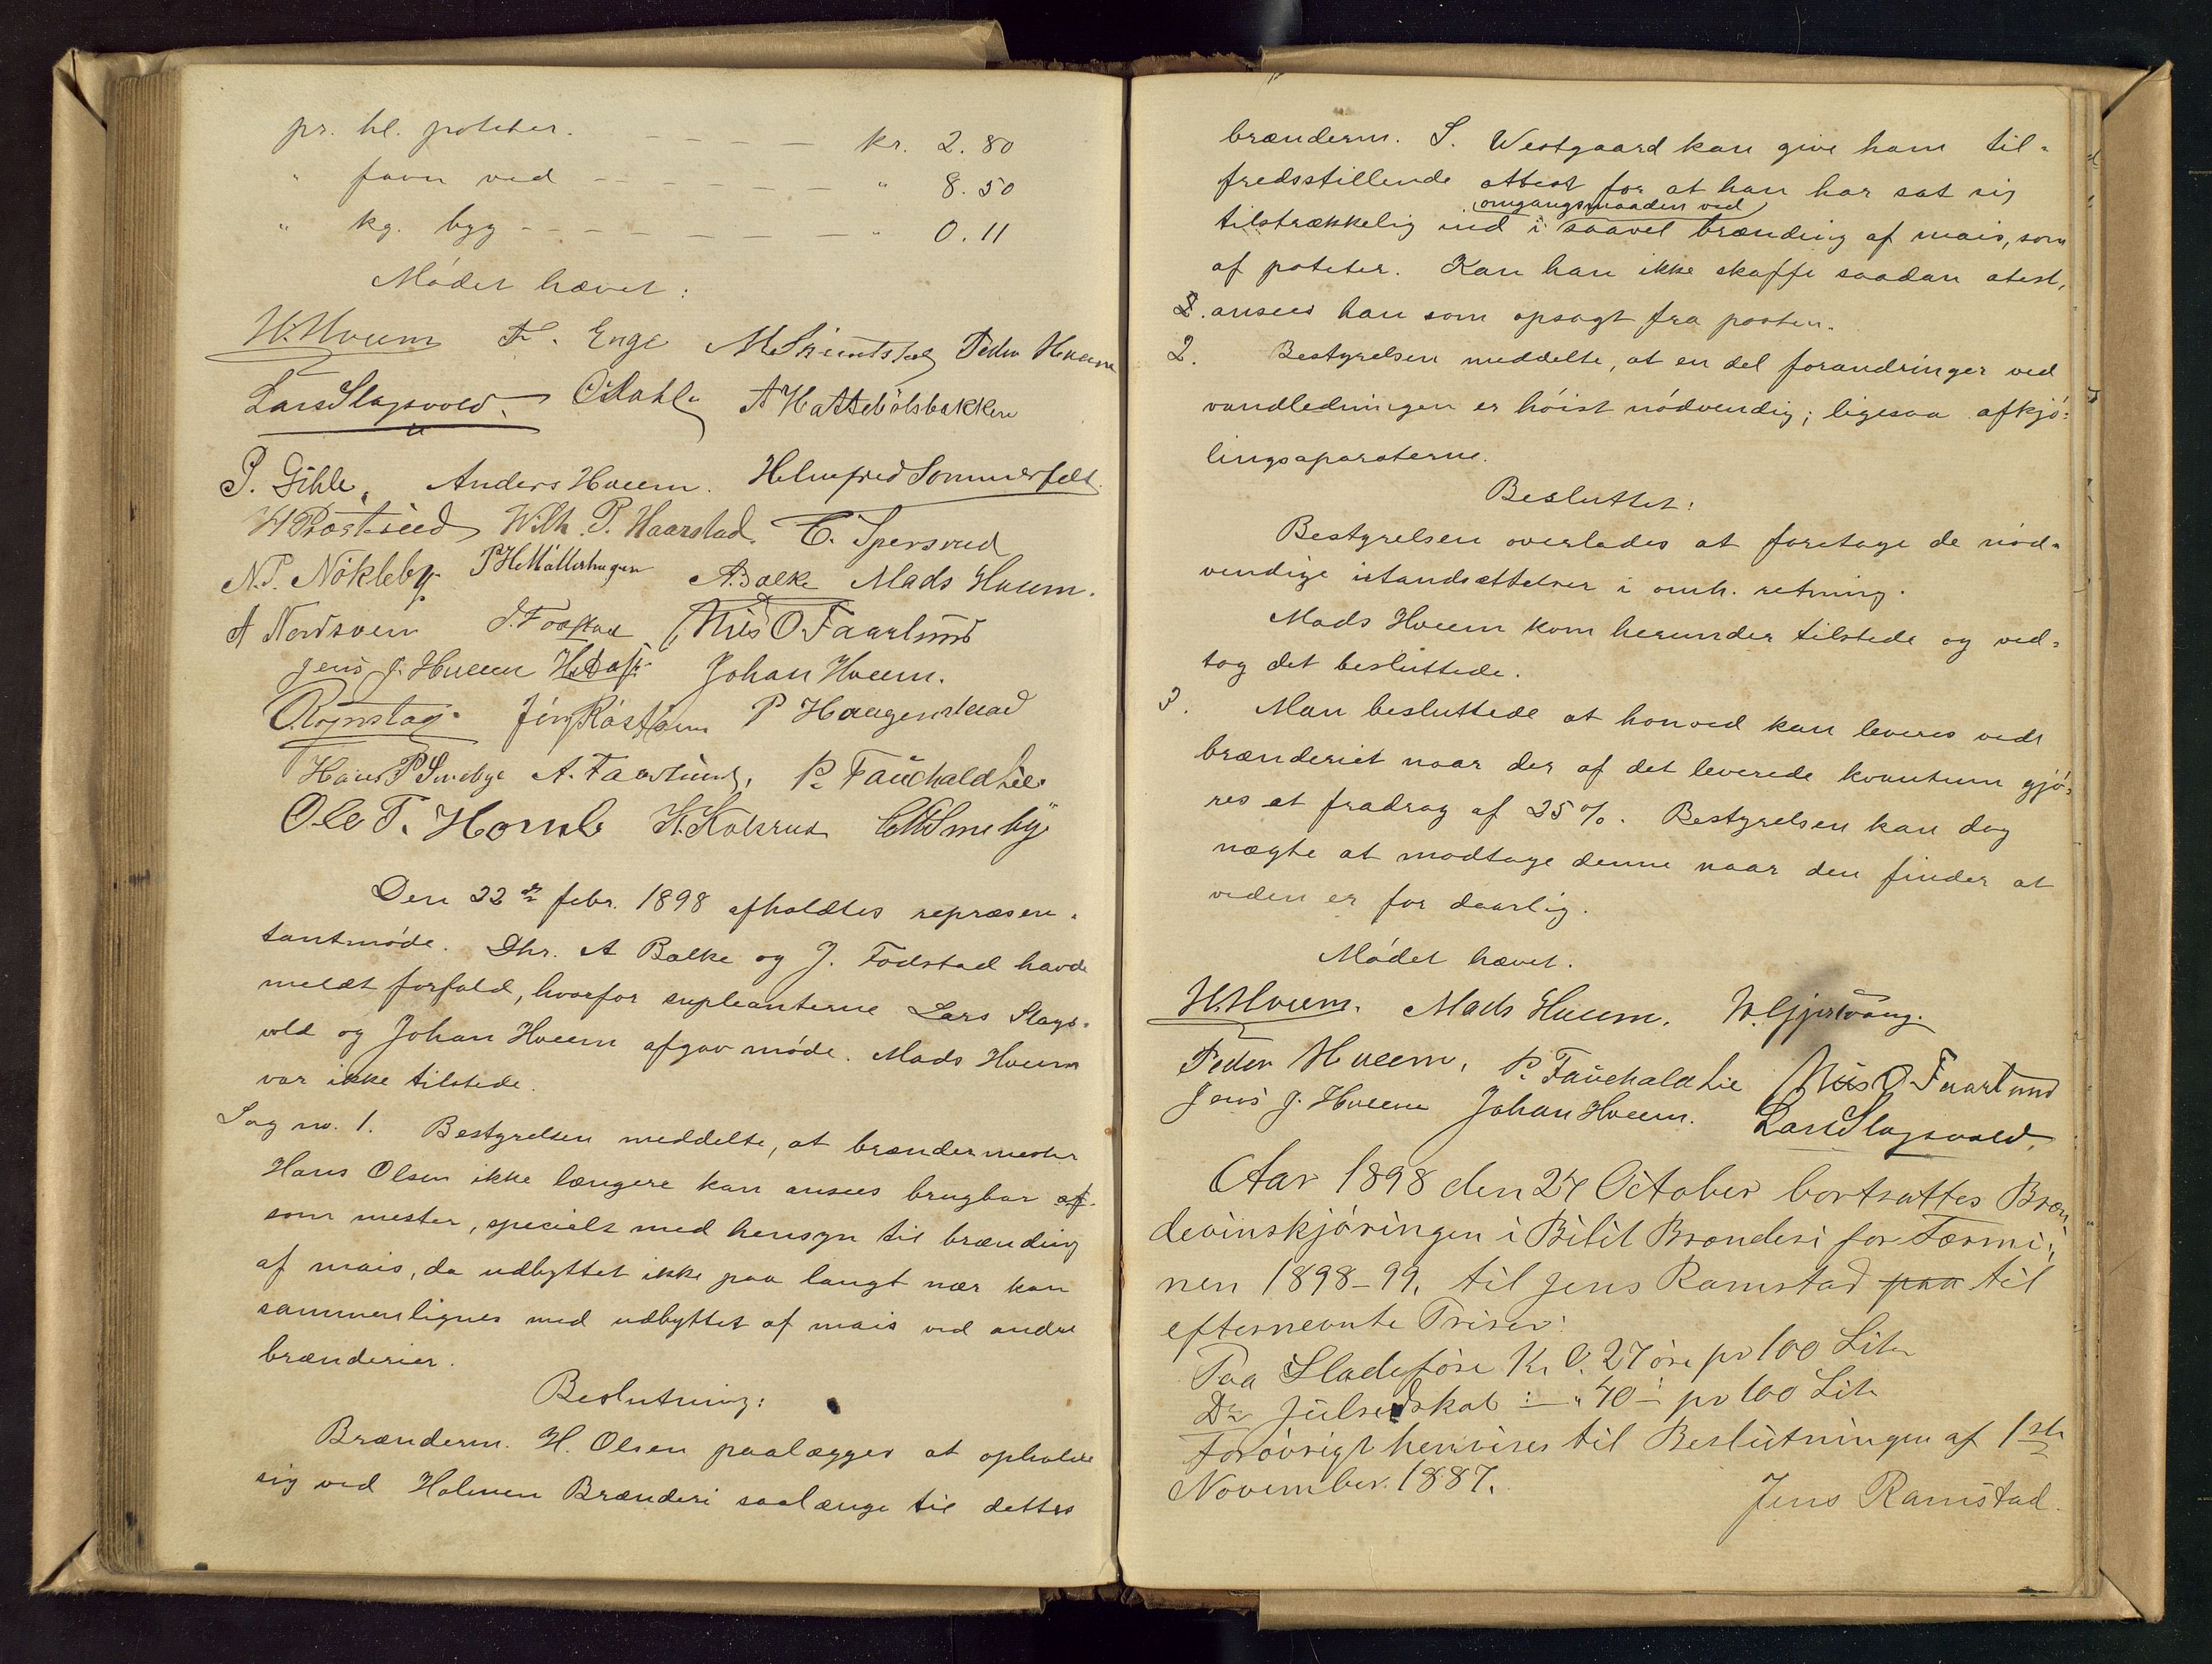 pr. hl. poteter. — — — — kr. 2.80
" favn ved — — — — — — " 8.50
" kg. byg — — — — — — " 0.11
Mödet hævet:
H. Hveem F. Enge M Skiøntstad Peder Hveem
Lars Slagsvold. O Dahl A Hattebölsbakken
P. Gihle, Anders Hveem. Helmfred Sommerfelt
Wilh. P. Haarstad. C. Spersrud
N.P. Nökleby P H Möllerhagen A. Balke Mads Hveem.
A Nordsveen J. Fodstad Nils O. Faarlund
Jens J. Hveem Johan Hveem.
P Haugerstaad
Hans P Smeby A. Faarlund, P. Fauchald Lie
Ole T. H. Kolsrud Smeby
Den 22de febr. 1898 afholdtes repræsen-
tantmöde. Dhr. A Balke og J. Fodstad havde
meldt forfald, hvorfor supleanterne Lars Slags-
vold og Johan Hveem afgav möde. Mads Hveem
var ikke tilstede.
Sag no. 1. Bestyrelsen meddelte, at brændermester
Hans Olsen ikke længere kan ansees brugbar af
som mester, specielt med hensyn til brænding
af mais, da udbyttet ikke paa langt nær kan
sammenlignes med udbyttet af mais ved andre
brænderier.
Beslutning:
Brænderm. H. Olsen paalægges at opholde
sig ved Holmen Brænderi saalænge til dettes
brænderm. S. Westgaard kan give ham til-
fredsstillende attest for at han har sat sig
omgangsmaaden ved
tilstrækkelig ind i saavel brænding af mais, som
af poteter. Kan han ikke skaffe saadan atest,
ansees han som opsagt fra posten.
2. Bestyrelsen meddelte, at en del forandringer ved
vandledningen er höist nödvendig; ligesaa afkjö-
lingsaparaterne.
Besluttet:
Bestyrelsen overlades at foretage de nöd-
vendige istandsættelser i omh. retning.
Mads Hveem kom herunder tilstede og ved-
tog det besluttede.
3. Man besluttede at honved kan leveres ved
brænderiet naar der af det leverede kvantum gjö-
res et fradrag af 25%. Bestyrelsen kan dog
nægte at modtage denne naar den finder at
veden er for daarlig.
Mödet hævet.
H. Hveem. Mads Hveem. N. Gjerstvang.
Peder Hveem, P. Fauchald Lie Nils O. Faarlund
Jens J. Hveem Johan Hveem. Lars Slagsvold.
Aar 1898 den 24 October bortsattes Bræn-
devinskjöringen i Bilit Brænderi for Termi-
nen 1898-99. til Jens Ramstad paa til
efternevnte Priser:
Paa Sladeföre Kr. 0.27 öre pr 100 Liter
Do Julredskab :— " 40 — pr 100 Lite
Forövrigt henvises til Beslutningen af 1ste
November. 1887.
Jens Ramstad.